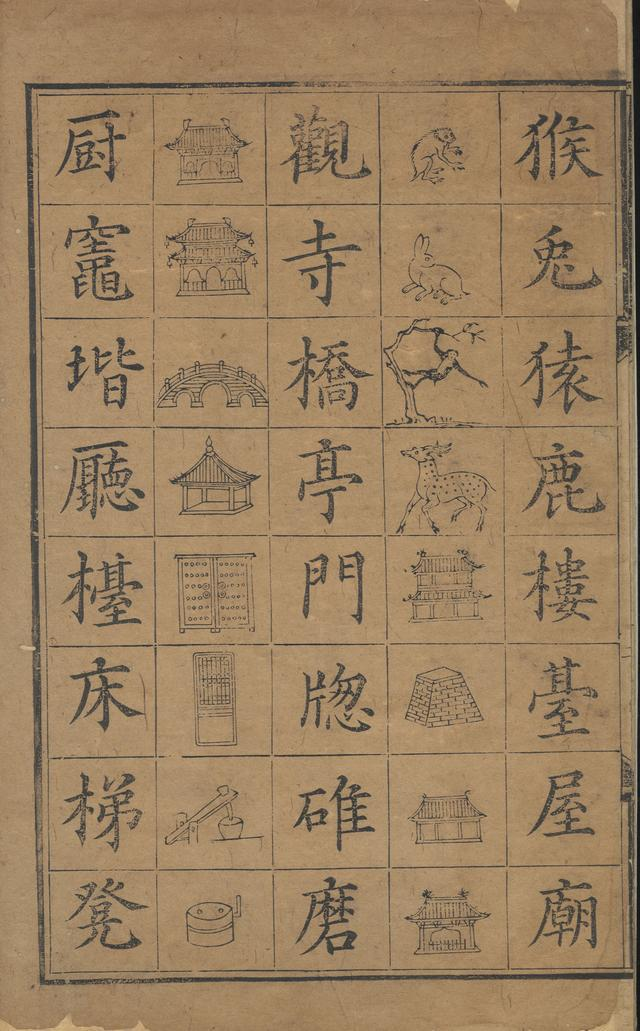 猴兔猿鹿樓臺屋廟
觀寺橋亭門牕碓磨
厨竈堦廳檯床梯凳